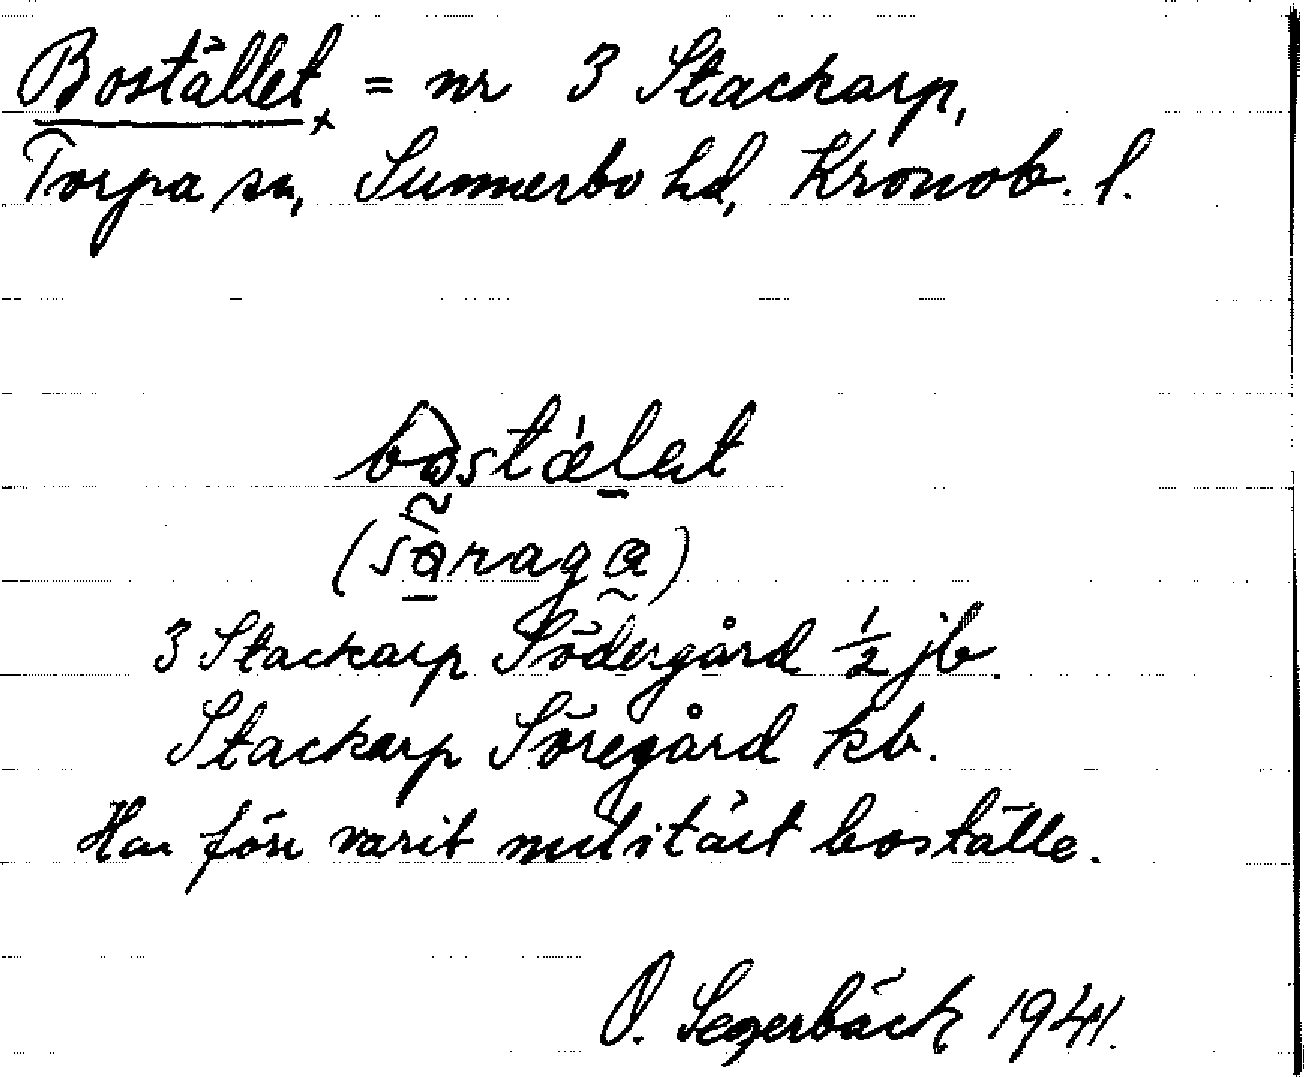 Bostället x = nr 3 Stackarp,
Torpa sn, Sunnerbo hd, Kronob. l.
bostäl̲et
(
3 Stackarp Södergård ½ jb.
Stackarp Söregård kb.
Har förr varit militärt boställe.
O. Segerbäck 1941.